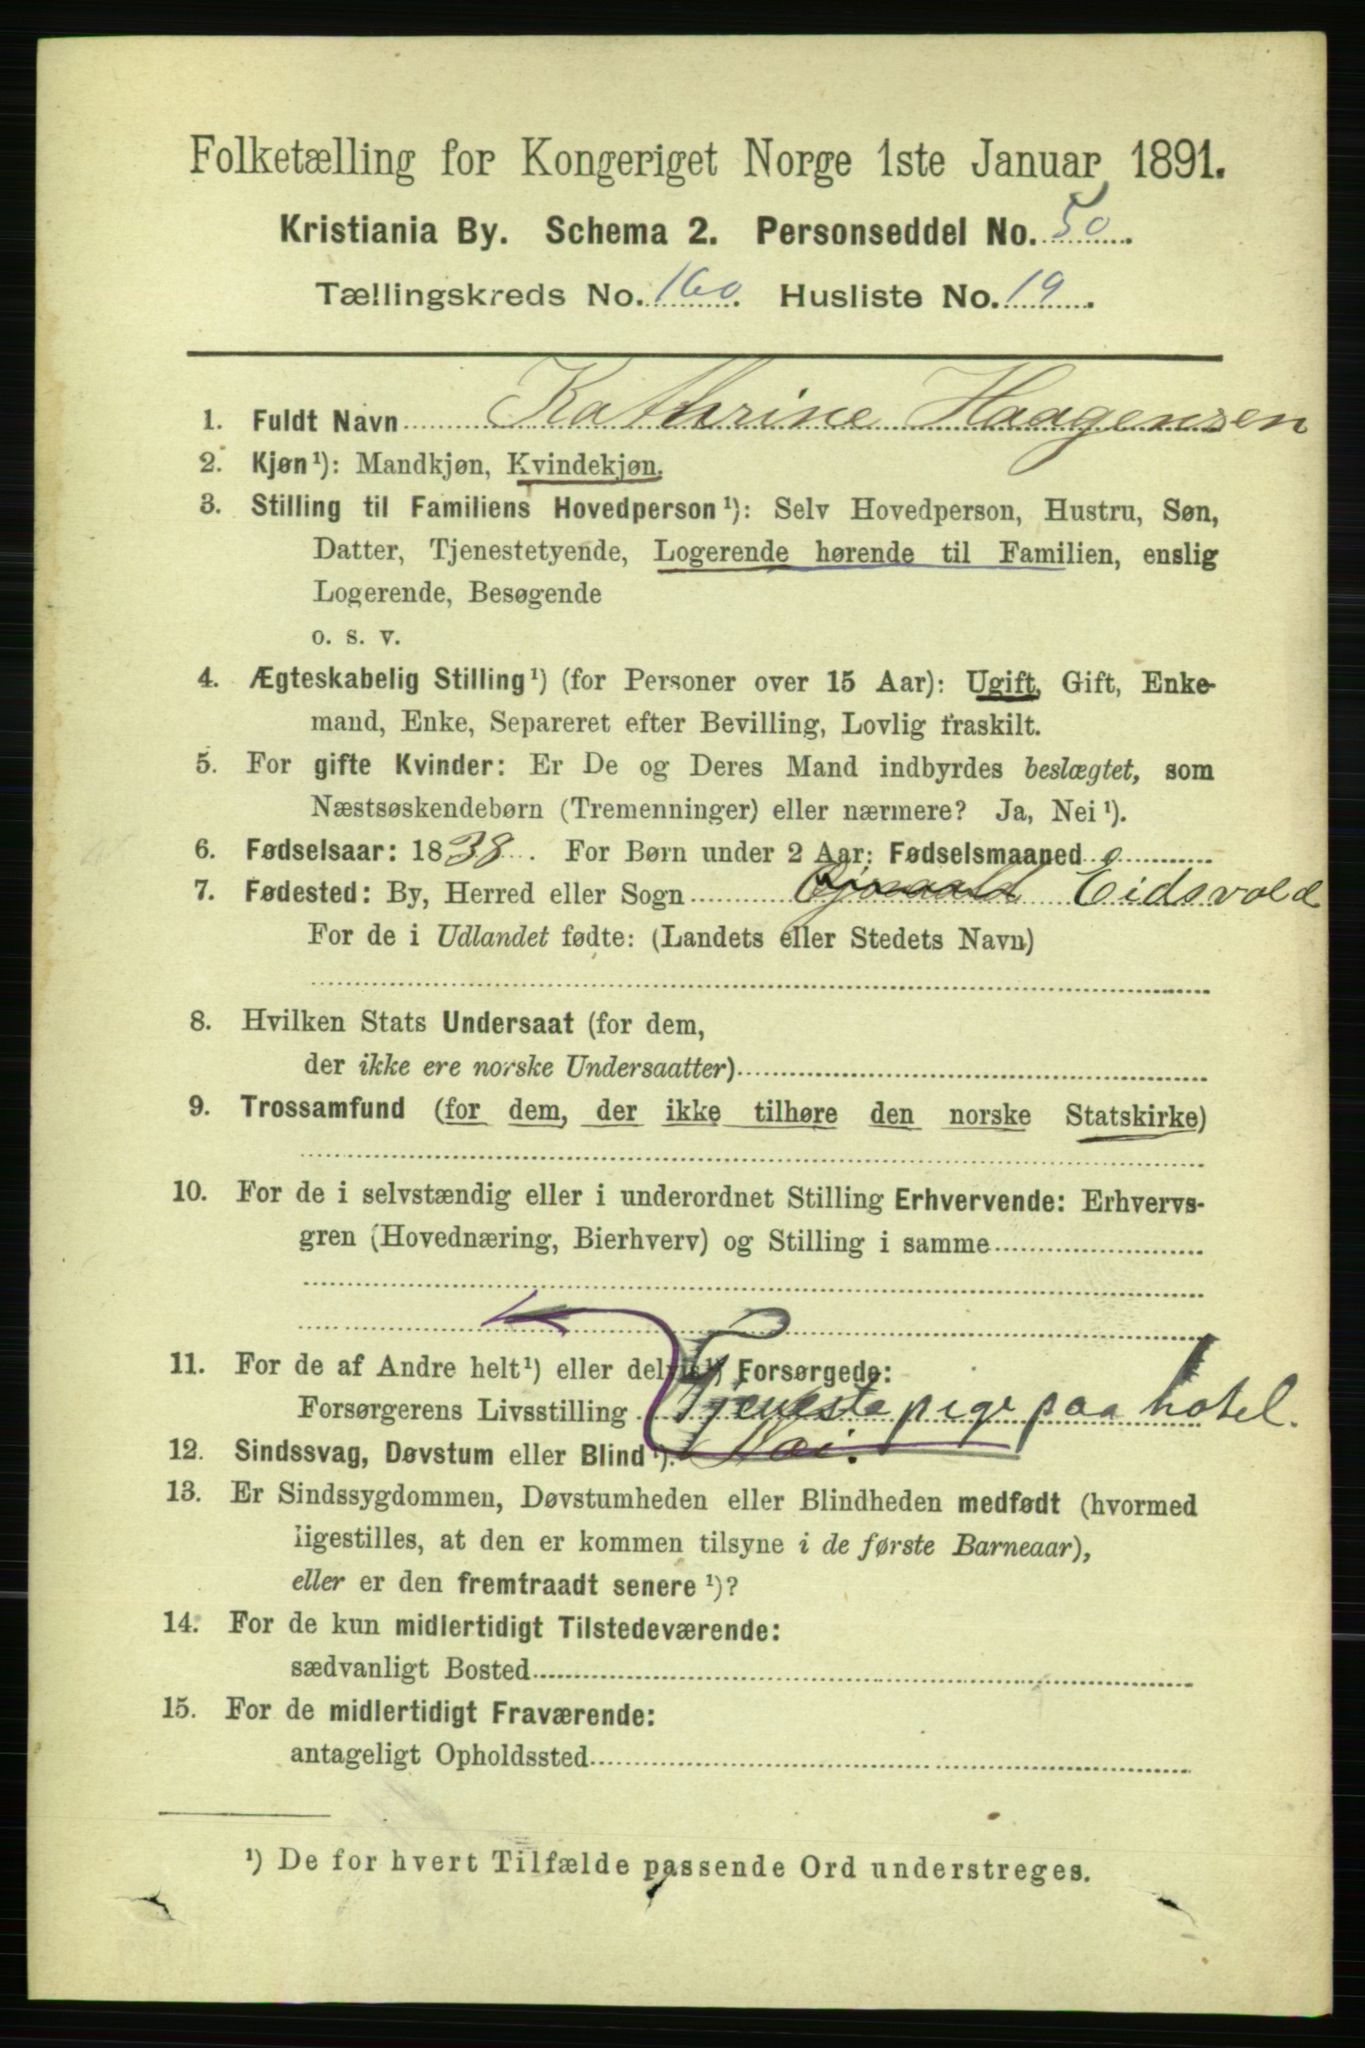 Folketælling for Kongeriget Norge 1ste Januar 1891.
Kristiania By. Schema 2. Personseddel No. 50.
Tællingskreds No. 160. Husliste No. 19.
1. Fuldt Navn Kathrine Haagensen
2. Kjøn¹): Mandkjøn, Kvindekjøn.
3. Stilling til Familiens Hovedperson¹): Selv Hovedperson, Hustru, Søn,
Datter, Tjenestetyende, Logerende hørende til Familien, enslig
Logerende, Besøgende
o. s. v.
4. Ægteskabelig Stilling¹) (for Personer over 15 Aar): Ugift, Gift, Enke-
mand, Enke, Separeret efter Bevilling, Lovlig fraskilt.
5. For gifte Kvinder: Er De og Deres Mand indbyrdes beslægtet, som
Næstsøskendebørn (Tremenninger) eller nærmere? Ja, Nei¹).
6. Fødselsaar: 1838. For Børn under 2 Aar: Fødselsmaaned
7. Fødested: By, Herred eller Sogn Eidsvold
For de i Udlandet fødte: (Landets eller Stedets Navn)
8. Hvilken Stats Undersaat (for dem,
der ikke ere norske Undersaatter)
9. Trossamfund (for dem, der ikke tilhøre den norske Statskirke)
10. For de i selvstændig eller i underordnet Stilling Erhvervende: Erhvervs-
gren (Hovednæring, Bierhverv) og Stilling i samme
11. For de af Andre helt¹) eller delvis¹) Forsørgede:
Forsørgerens Livsstilling Tjenestepige paa hotel.
12. Sindssvag, Døvstum eller Blind¹). Nei.
13. Er Sindssygdommen, Døvstumheden eller Blindheden medfødt (hvormed
ligestilles, at den er kommen tilsyne i de første Barneaar),
eller er den fremtraadt senere¹)?
14. For de kun midlertidigt Tilstedeværende:
sædvanligt Bosted
15. For de midlertidigt Fraværende:
antageligt Opholdssted
¹) De for hvert Tilfælde passende Ord understreges.